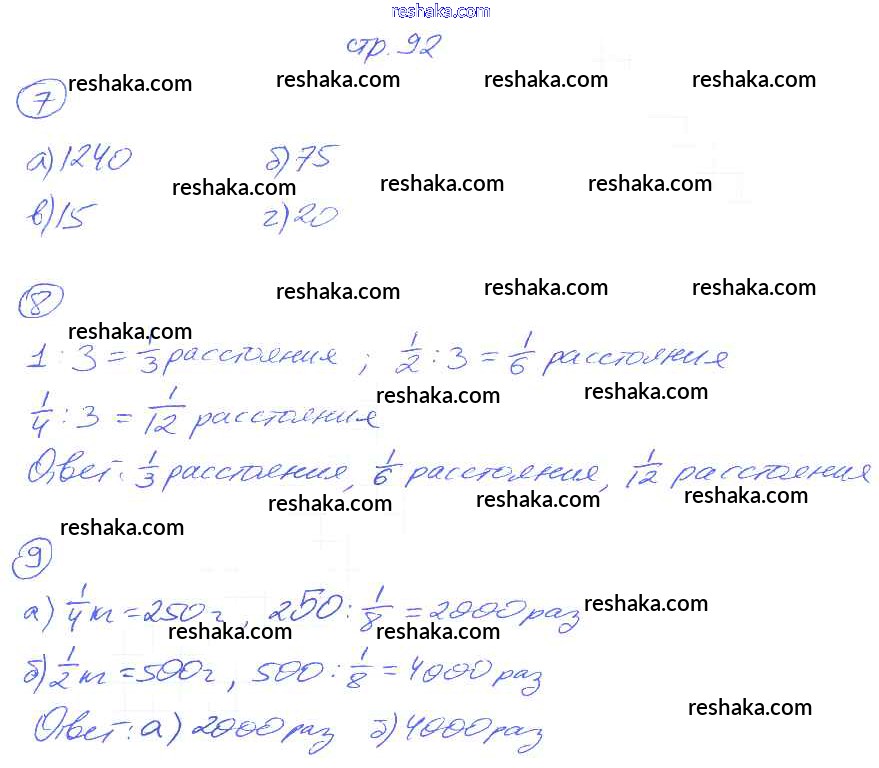 reshaka.com
стр. 92
reshaka.com reshaka.com reshaka.com reshaka.com
7
а) 1240 б) 75
reshaka.com reshaka.com reshaka.com
в) 15 г) 20
8 reshaka.com reshaka.com reshaka.com
reshaka.com
1 : 3 = 1/3 расстояния ; 1/2 : 3 = 1/6 расстояния
reshaka.com reshaka.com
1/4 : 3 = 1/12 расстояния
Ответ: 1/3 расстояния, 1/6 расстояния, 1/12 расстояния
reshaka.com reshaka.com reshaka.com reshaka.com
9
а) 1/4 кг = 250 г, 250 : 1/8 = 2000 раз reshaka.com
reshaka.com reshaka.com
б) 1/2 кг = 500 г, 500 : 1/8 = 4000 раз
reshaka.com
Ответ: а) 2000 раз б) 4000 раз